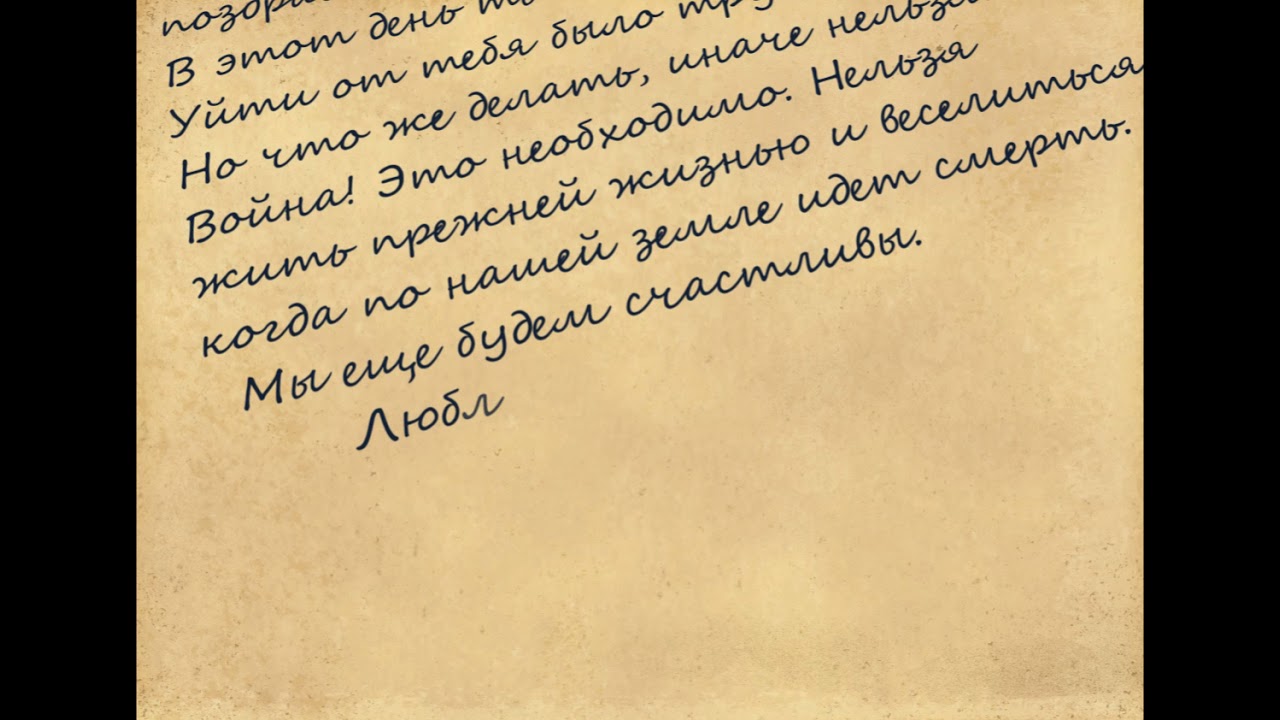 В этот день
Уйти от тебя было
Но что же делать, иначе нельзя
Война! Это необходимо. Нельзя
жить прежней жизнью и веселиться
когда по нашей земле идет смерть.
Мы еще будем счастливы.
Любл